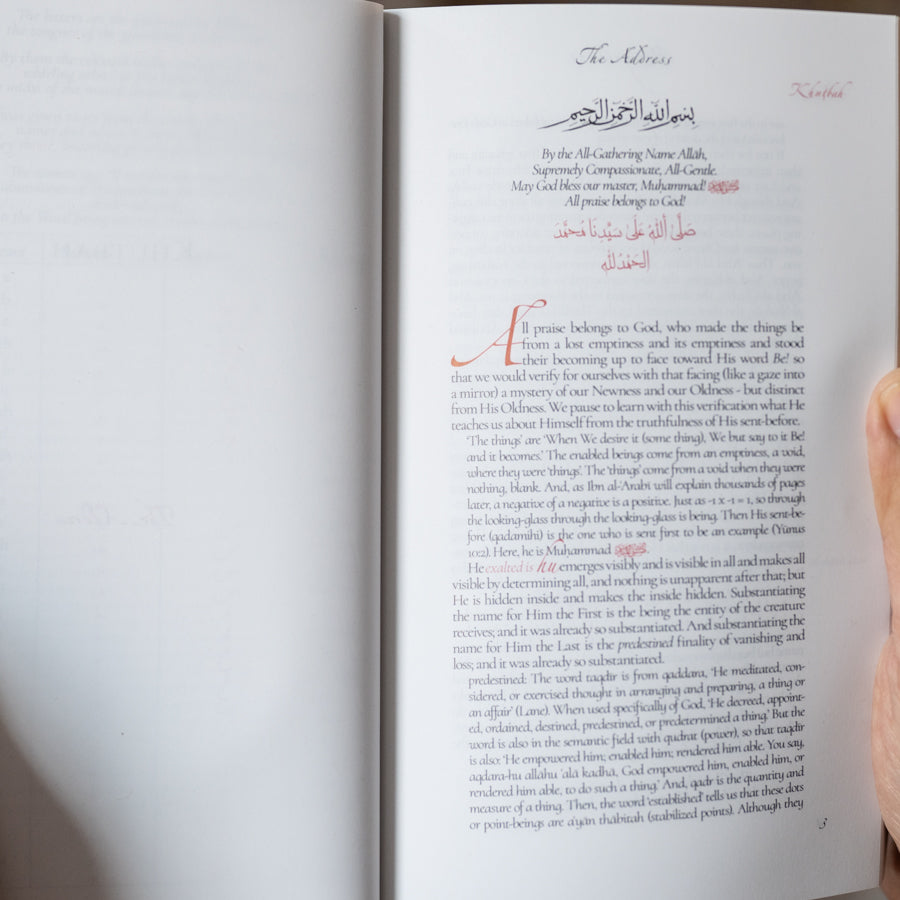 The Address
Khuṭbah
بِسْمِ اللَّهِ الرَّحْمَنِ الرَّحِيمِ
By the All-Gathering Name Allāh,
Supremely Compassionate, All-Gentle.
May God bless our master, Muḥammad! ﷺ
All praise belongs to God!
صَلَّىٰ اللّٰهُ عَلَىٰ سَيِّدِنَا مُحَمَّدَ
الحَمْدُ لله
All praise belongs to God, who made the things be
from a lost emptiness and its emptiness and stood
their becoming up to face toward His word Be! so
that we would verify for ourselves with that facing (like a gaze into
a mirror) a mystery of our Newness and our Oldness - but distinct
from His Oldness. We pause to learn with this verification what He
teaches us about Himself from the truthfulness of His sent-before.
'The things' are 'When We desire it (some thing), We but say to it Be!
and it becomes.' The enabled beings come from an emptiness, a void,
where they were 'things'. The 'things' come from a void when they were
nothing, blank. And, as Ibn al-ʿArabī will explain thousands of pages
later, a negative of a negative is a positive. Just as -1 x -1 = 1, so through
the looking-glass through the looking-glass is being. Then His sent-be-
fore (qadamihi) is the one who is sent first to be an example (Yūnus
10:2). Here, he is Muḥammad ﷺ.
He exalted is hu emerges visibly and is visible in all and makes all
visible by determining all, and nothing is unapparent after that; but
He is hidden inside and makes the inside hidden. Substantiating
the name for Him the First is the being the entity of the creature
receives; and it was already so substantiated. And substantiating the
name for Him the Last is the predestined finality of vanishing and
loss; and it was already so substantiated.
predestined: The word taqdīr is from qaddara, 'He meditated, con-
sidered, or exercised thought in arranging and preparing, a thing or
an affair' (Lane). When used specifically of God, 'He decreed, appoint-
ed, ordained, destined, predestined, or predetermined a thing.' But the
word is also in the semantic field with qudrat (power), so that taqdīr
is also: 'He empowered him; enabled him; rendered him able. You say,
aqdara-hu allāhu ʿalā kadhā, God empowered him, enabled him, or
rendered him able, to do such a thing.' And, qadr is the quantity and
measure of a thing. Then, the word 'established' tells us that these dots
or point-beings are aʿyān thābitah (stabilized points). Although they
3